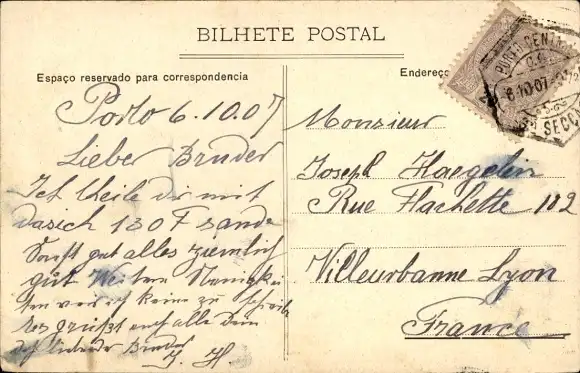 BILHETE POSTAL
Espaço reservado para correspondencia
Porto 6.10.07
Lieber Bruder
Ich theile dir mit
dasich 130 F sande
Sonst gut alles ziemlich
gut
ich keine zu
grüßt euch alle
Bruder
J. H.
Endereço
Monsieur
Joseph Haegelin
Rue Flachette 112
Villeurbanne Lyon
France
PORTO CENTRAL
6-10-07
SECC